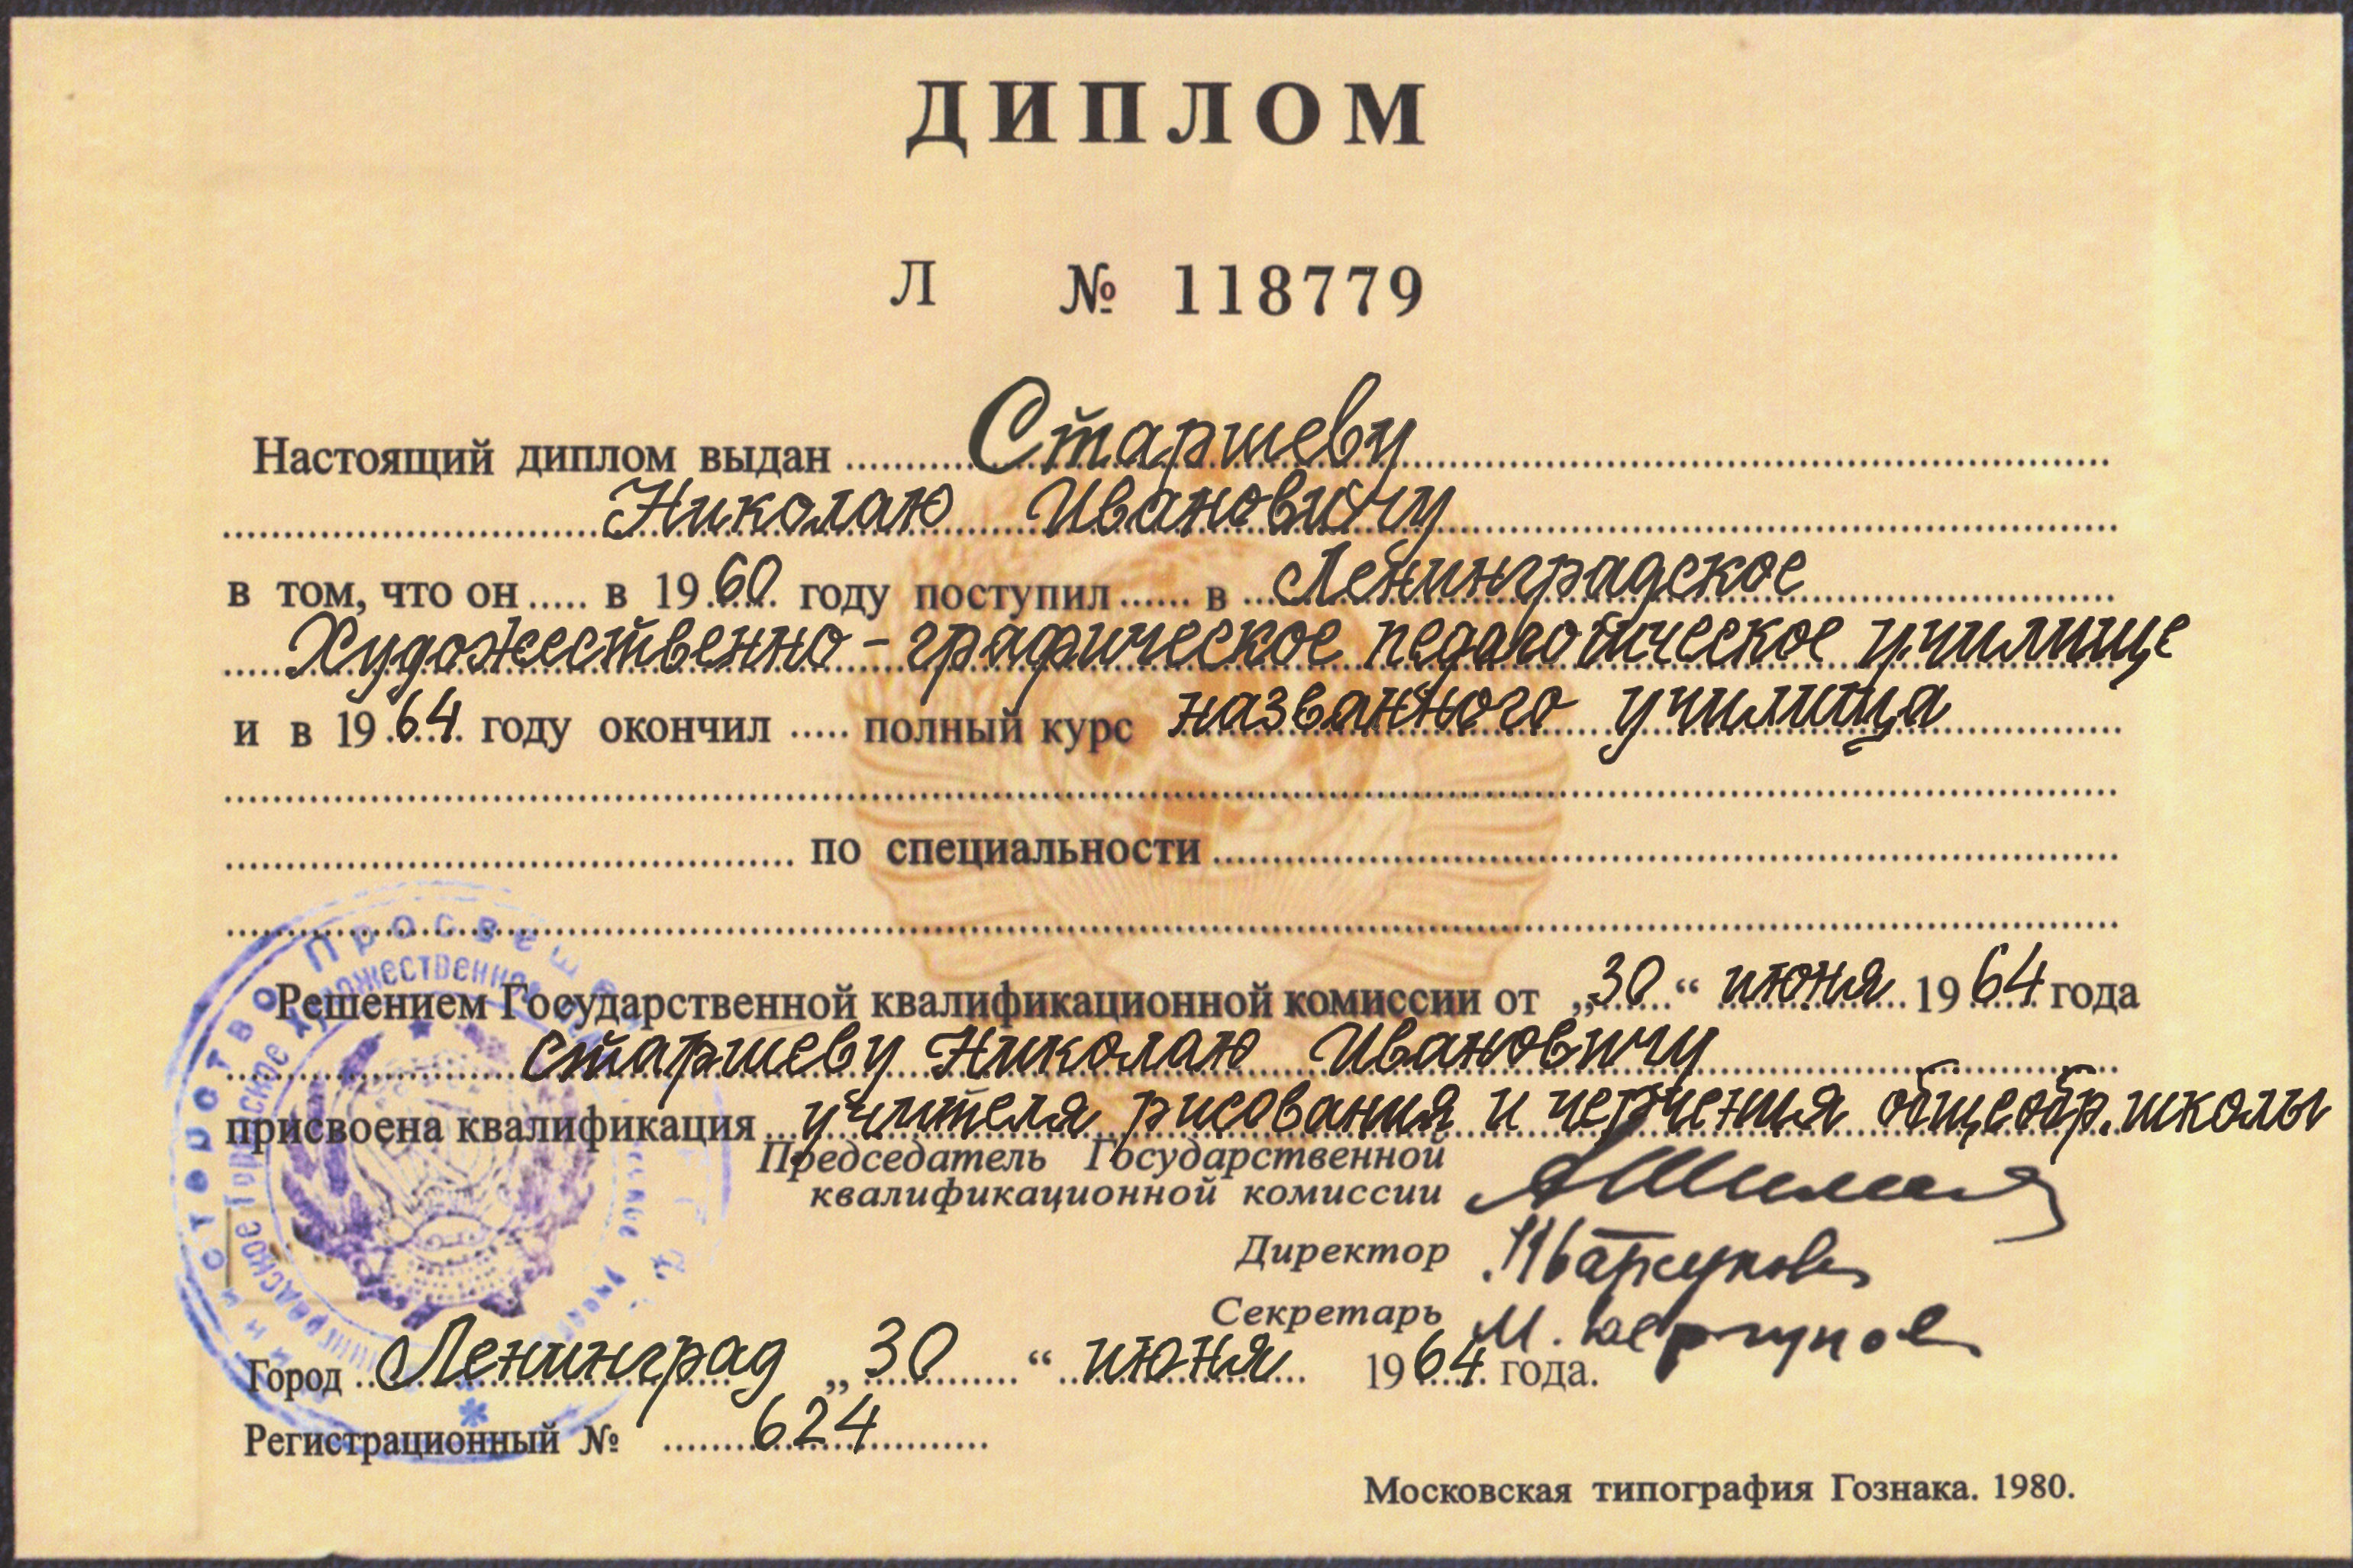 ДИПЛОМ
Л № 118779
Настоящий диплом выдан Старшеву
Николаю Ивановичу
в том, что он в 1960 году поступил в Ленинградское
Художественно-графическое педагогическое училище
и в 1964 году окончил полный курс названного училища
по специальности
Решением Государственной квалификационной комиссии от „30“ июня 1964 года
Старшеву Николаю Ивановичу
присвоена квалификация учителя рисования и черчения общеобр. школы
Председатель Государственной
квалификационной комиссии
Директор
Секретарь
Город Ленинград „30“ июня 1964 года.
Регистрационный № 624
Московская типография Гознака. 1980.